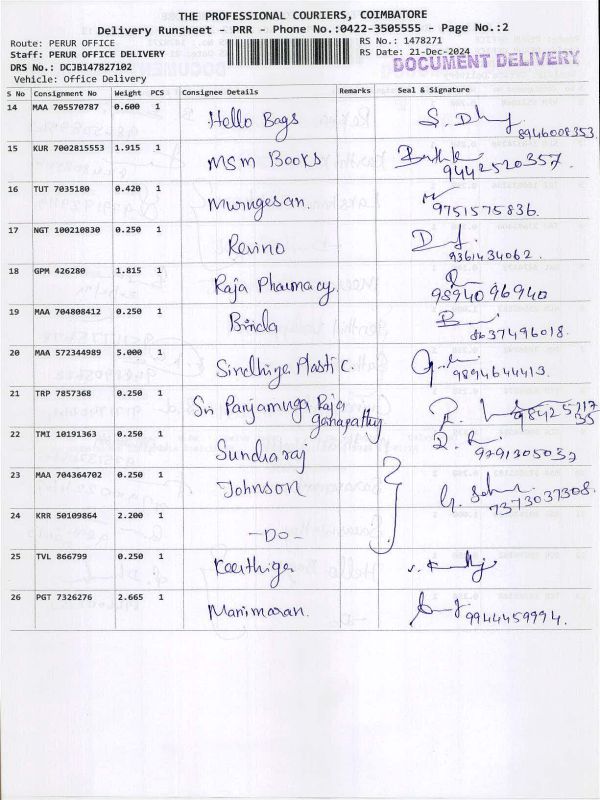 THE PROFESSIONAL COURIERS, COIMBATORE
Delivery Runsheet - PRR - Phone No.:0422-3505555 - Page No.:2
Route: PERUR OFFICE RS No.: 1478271
Staff: PERUR OFFICE DELIVERY RS Date: 21-Dec-2024
DRS No.: DCJB147827102 DOCUMENT DELIVERY
Vehicle: Office Delivery
S No Consignment No Weight PCS Consignee Details Remarks Seal & Signature
14 MAA 705570787 0.600 1 Hello Bags 8946008353
15 KUR 7002815553 1.915 1 MSM Books 9442520357.
16 TUT 7035180 0.420 1 Murugesan. 9751575836.
17 NGT 100210830 0.250 1 Revino 9361434062.
18 GPM 426280 1.815 1 Raja Pharmacy. 98940 96940
19 MAA 704808412 0.250 1 Binda 8637496018.
20 MAA 572344989 5.000 1 Sindhiga Plastic. 9894644413.
21 TRP 7857368 0.250 1 Sri Panjamuga Raja
ganapathy
22 TMI 10191363 0.250 1 Sundharaj
23 MAA 704364702 0.250 1 Johnson 7373037308.
24 KRR 50109864 2.200 1 -DO-
25 TVL 866799 0.250 1 Keerthiga
26 PGT 7326276 2.665 1 Manimaran. 9944459994.